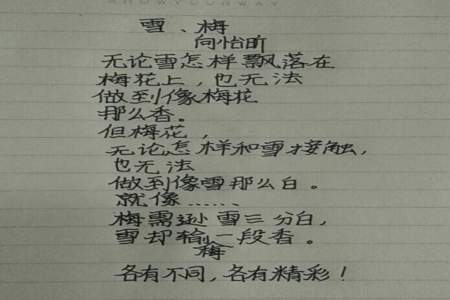 雪、梅
向怡昕
无论雪怎样飘落在
梅花上，也无法
做到像梅花
那么香。
但梅花，
无论怎样和雪接触，
也无法
做到像雪那么白。
就像……
梅需逊雪三分白，
雪却输一段香。
梅
各有不同，各有精彩！